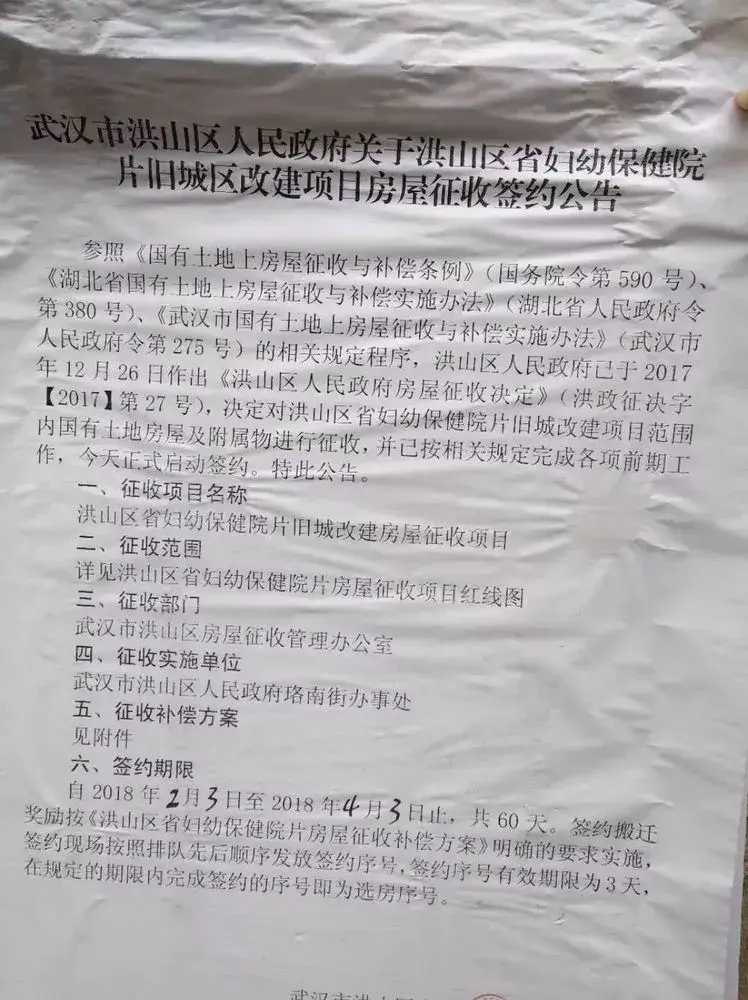 武汉市洪山区人民政府关于洪山区省妇幼保健院
片旧城区改建项目房屋征收签约公告
参照《国有土地上房屋征收与补偿条例》（国务院令第 590 号）、
《湖北省国有土地上房屋征收与补偿实施办法》（湖北省人民政府令
第 380 号）、《武汉市国有土地上房屋征收与补偿实施办法》（武汉市
人民政府令第 275 号）的相关规定程序，洪山区人民政府已于 2017
年 12 月 26 日作出《洪山区人民政府房屋征收决定》（洪政征决字
【2017】第 27 号），决定对洪山区省妇幼保健院片旧城改建项目范围
内国有土地房屋及附属物进行征收，并已按相关规定完成各项前期工
作，今天正式启动签约。特此公告。
一、征收项目名称
洪山区省妇幼保健院片旧城改建房屋征收项目
二、征收范围
详见洪山区省妇幼保健院片房屋征收项目红线图
三、征收部门
武汉市洪山区房屋征收管理办公室
四、征收实施单位
武汉市洪山区人民政府珞南街办事处
五、征收补偿方案
见附件
六、签约期限
自 2018 年 2 月 3 日至 2018 年 4 月 3 日止，共 60 天。签约搬迁
奖励按《洪山区省妇幼保健院片房屋征收补偿方案》明确的要求实施，
签约现场按照排队先后顺序发放签约序号，签约序号有效期限为 3 天，
在规定的期限内完成签约的序号即为选房序号。
武汉市洪山区